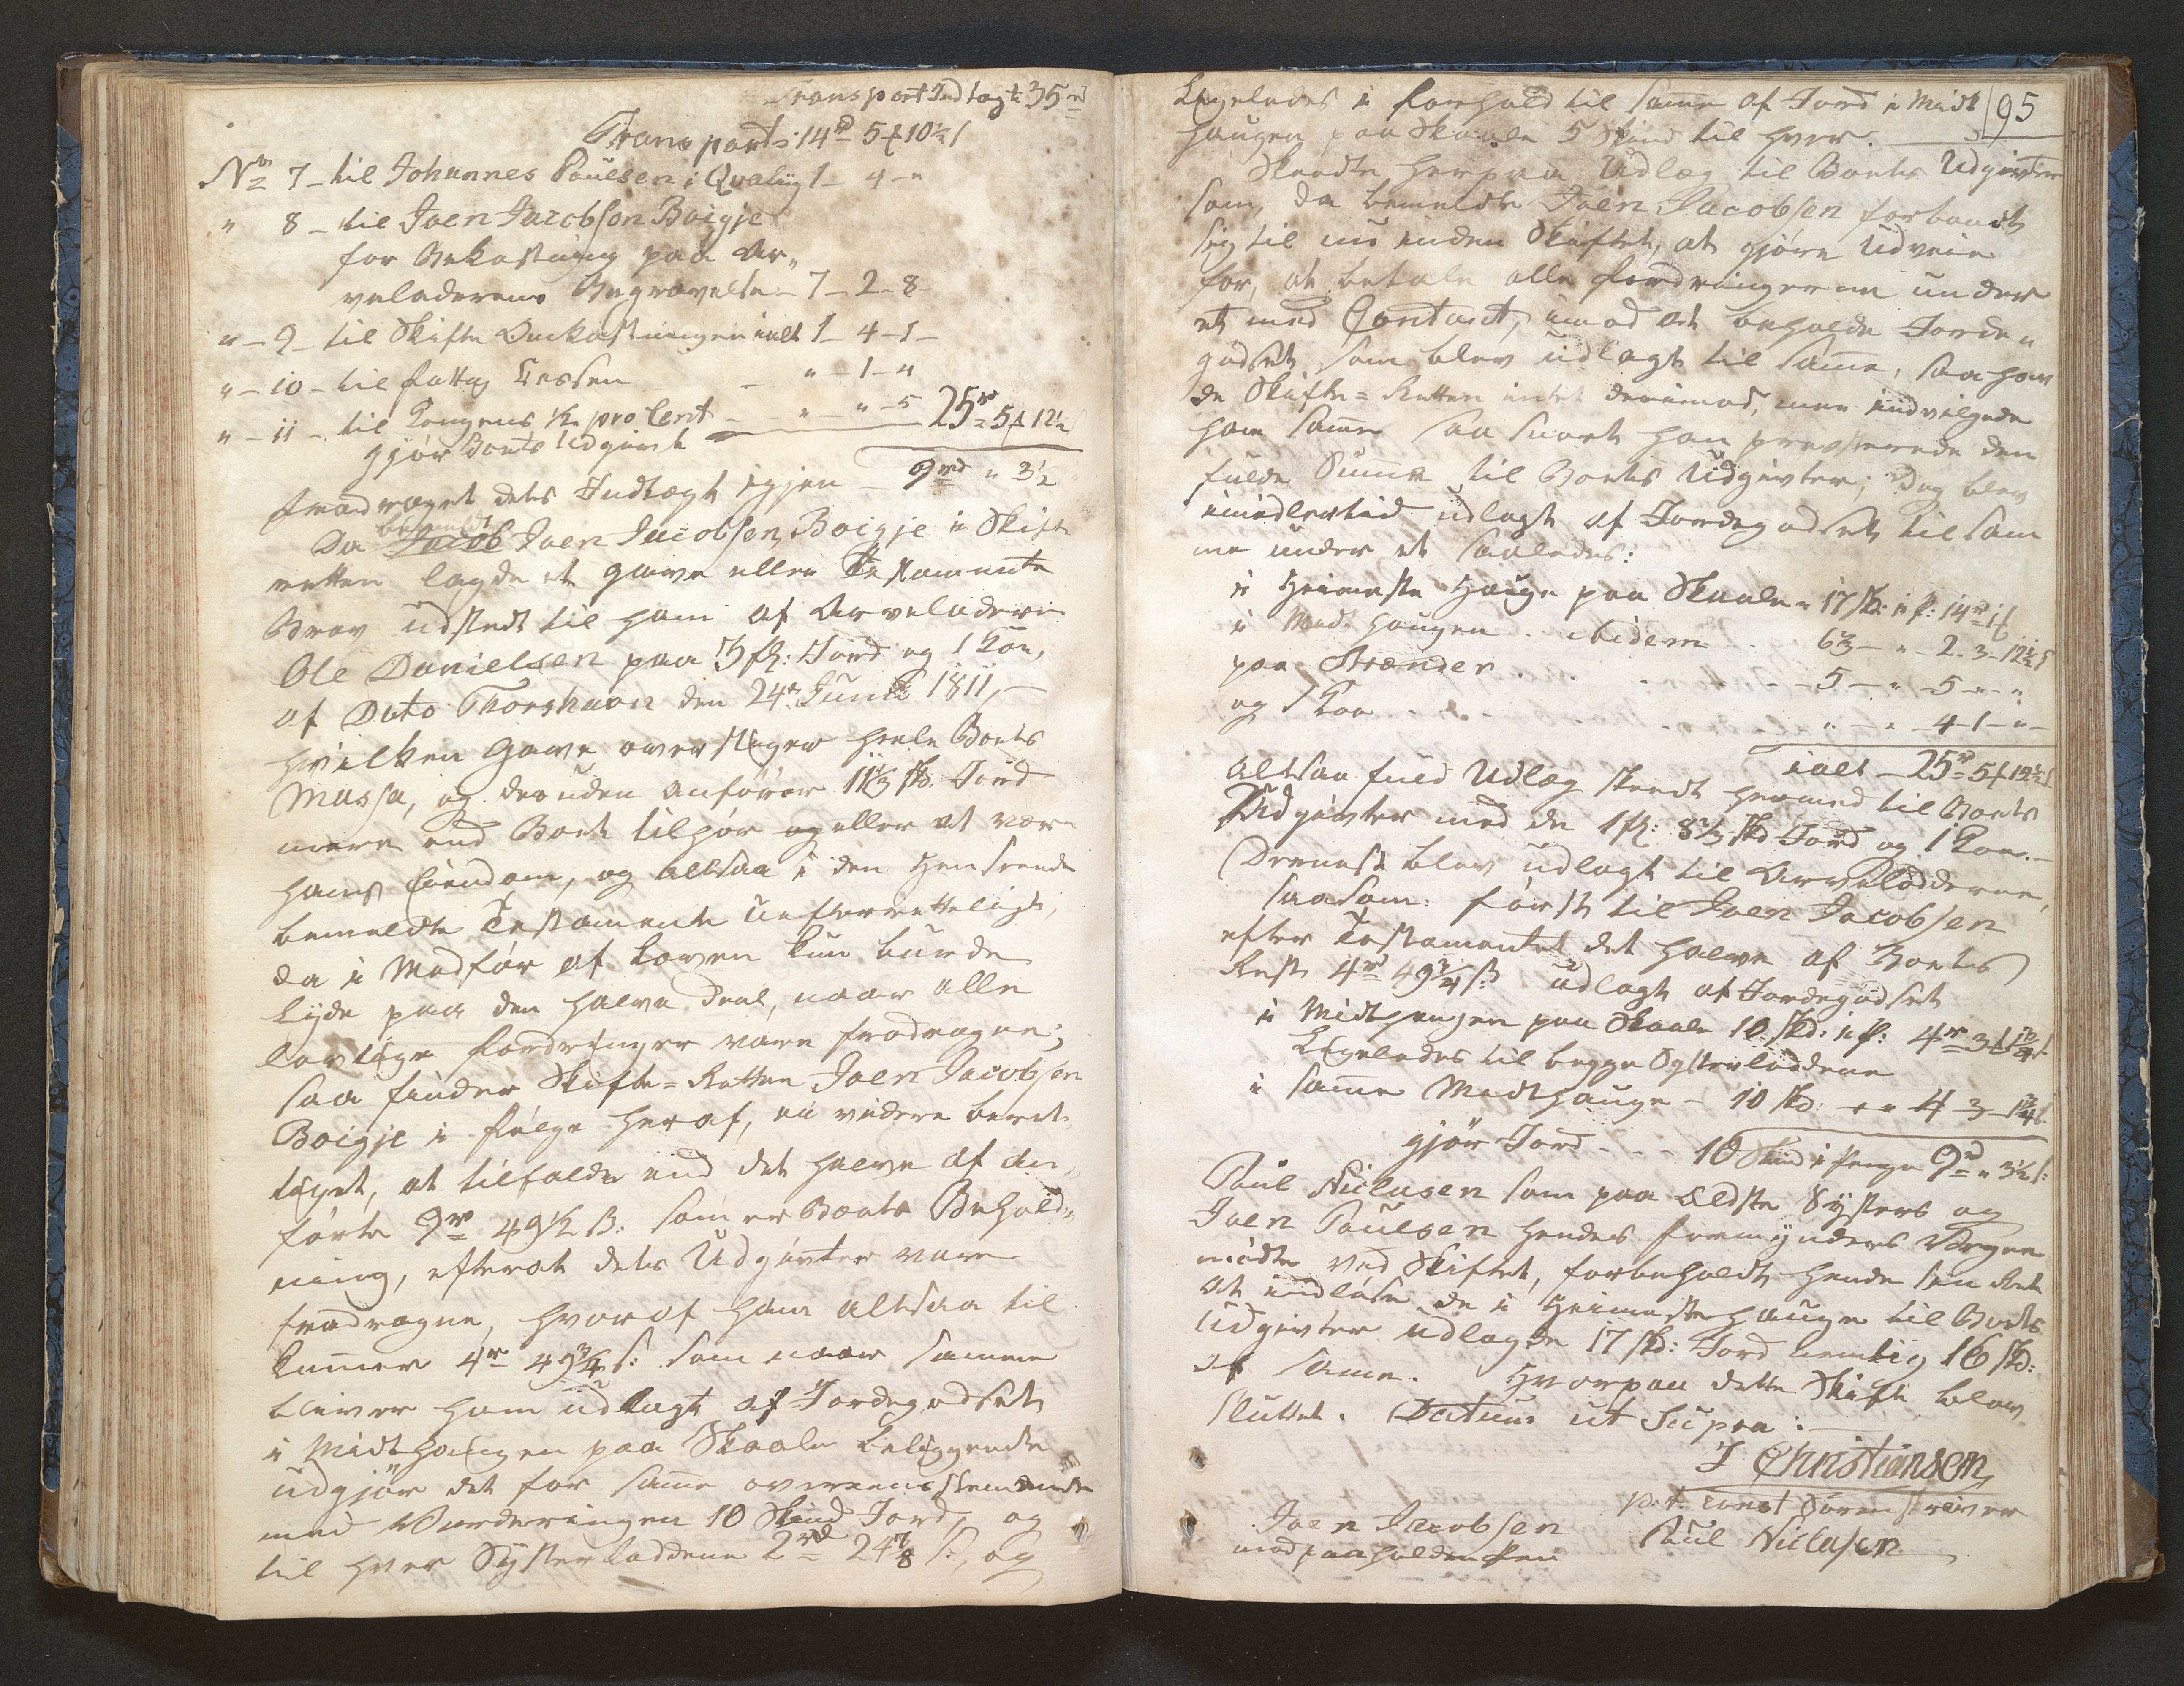 Transport Indtægt 35 rd
Transport: 14rd 5f 10½ s
No 7 - til Johannes Poulsen i Qvalvig 1 - 4 - "
" 8 - til Joen Jacobsen Boigje
for Bekostning paa Ar„
veladerens Begravelse - 7 - 2 - 8
" - 9 - til Skifte Omkostningen ialt 1 - 4 - 1 -
" - 10 - til fattig Cassen - " - 1 - 4
" - 11 - til Kongens ½ pro Cent - " - " - 5
gjør Boets Udgivt 25r 5f 12½
fradraget dets Indtægt igjen 9rd " 3½
Da bemeldte Joen Jacobsen Boigje i Skifte
retten lagde et Gave eller Testamente
Brev udstedt til ham af Arveladeren
Ole Danielsen paa 3 gl: Jord og 1 Koe,
af Dato Thorshavn den 24de Junii 1811,
hvilken Gave overstiger heele Boets
Massa, og desuden anfører 11⅓ skd. Jord
mere end Boet tilhør og eller at være
hans Eiendom, og altsaa i den Henseende
bemeldte Testamente uefterretteligt,
da i Medfør af Loven kun burde
lyde paa den halve Deel, naar alle
lovlige fordringer vare fradragne;
saa finder Skifte=Retten Joen Jacobsen
Boigje i følge heraf, ei videre beret„
tiget, at tilfalde end det halve af an„
førte 9r 49½ ß: som er Boets Behold„
ning, efterat dets Udgivter vare
fradragne, hvoraf ham altsaa til
kummer 4r 49¾ s: som naar samme
bliver ham udlagt af Jordegodset
i Midthaugen paa Skaale beliggende
udgjør det for samme overeensstemmende
med Vurderingen 10 Skind Jord, og
til hver Systerloddene 2rd 24⅞ s:, og
95
Ligeledes i forhold til samme af Jord i Midt
haugen paa Skaale 5 Skind til hver.
Skeedte herpaa Udlæg til Boets Udgivter
som, da bemeldte Joen Jacobsen forbandt
sig til nu inden Skiftet, at gjøre Udveie
for, at betale alle fordringerne under
et med Contant, imod at beholde Jorde„
godset som blev udlagt til samme, saa hav
de Skifte=Retten intet derimod, men indvilgede
ham samme saa snart han præsterede den
fulde Summa til Boets Udgivter; Dog blev
imidlertid udlagt af Jordegodset til sam
me under et saaledes:
i Heimeste Hauge paa Skaale " 17 skd: i p: 14rd 1f
i Midt Haugen . ibidem . . 6⅔ - " - 2 - 3 - 12½ s
paa Strænder . . . . - - 5 - " - 5 - " - "
og 1 Koe . . . . " - " - 4 - 1 - " -
ialt - 25rd 5f 12½ s
Altsaa fuld Udlæg skeedt hermed til Boets
Udgivter med de 1 gl: 8⅔ skd Jord og 1 Koe. -
Dernest blev udlagt til Arvelodderne,
saasom: først til Joen Jacobsen
efter Testamentet det halve af Boets
Rest 4rd 49¾ ß udlagt af Jordegodset
i Midthaugen paa Skaale 10 skd: i p: 4rd 3f 1¾ s.
Ligeledes til begge Systerloddene
i samme Midthauge - 10 skd: - " 4 - 3 - 1¾ s.
gjør Jord - - - 10 Skind i Penge 9rd " 3½ s:
Poul Niclasen som paa Eldste Systers og
Joen Poulsen hendes formynders Vegne
mødte ved Skiftet, forbeholdt hende sin Ret
at indløse de i Heimeste Hauge til Boets
Udgivter udlagde 17 skd: Jord nemlig 16 skd:
af samme. Hvorpaa dette Skifte blev
sluttet. Datum ut Supra:
J Christiansen
p. t. const Sorenskriver
Joen Jacobsen
med paaholden Pen
Poul Niclasen